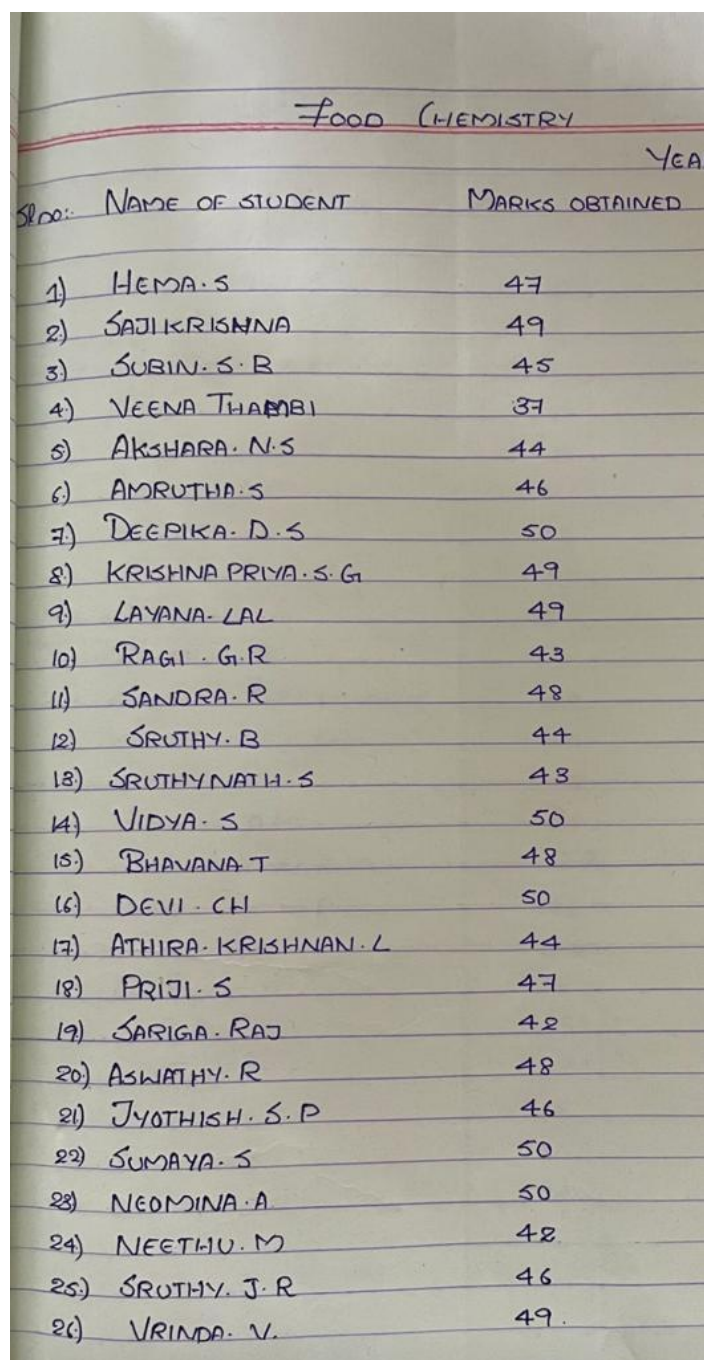 FOOD CHEMISTRY
YEA
Sl no:. NAME OF STUDENT MARKS OBTAINED
1) HEMA.S 47
2) SAJIKRISHNA 49
3) SUBIN.S.B 45
4) VEENA THAMBI 37
5) AKSHARA.N.S 44
6) AMRUTHA.S 46
7) DEEPIKA.D.S 50
8) KRISHNA PRIYA.S.G 49
9) LAYANA.LAL 49
10) RAGI.G.R 43
11) SANDRA.R 48
12) SRUTHY.B 44
13) SRUTHYNATH.S 43
14) VIDYA.S 50
15) BHAVANA T 48
16) DEVI.CH 50
17) ATHIRA.KRISHNAN.L 44
18) PRIJI.S 47
19) SARIGA.RAJ 42
20) ASWATHY.R 48
21) JYOTHISH.S.P 46
22) SUMAYA.S 50
23) NEOMINA.A 50
24) NEETHU.M 42
25) SRUTHY.J.R 46
26) VRINDA.V. 49.